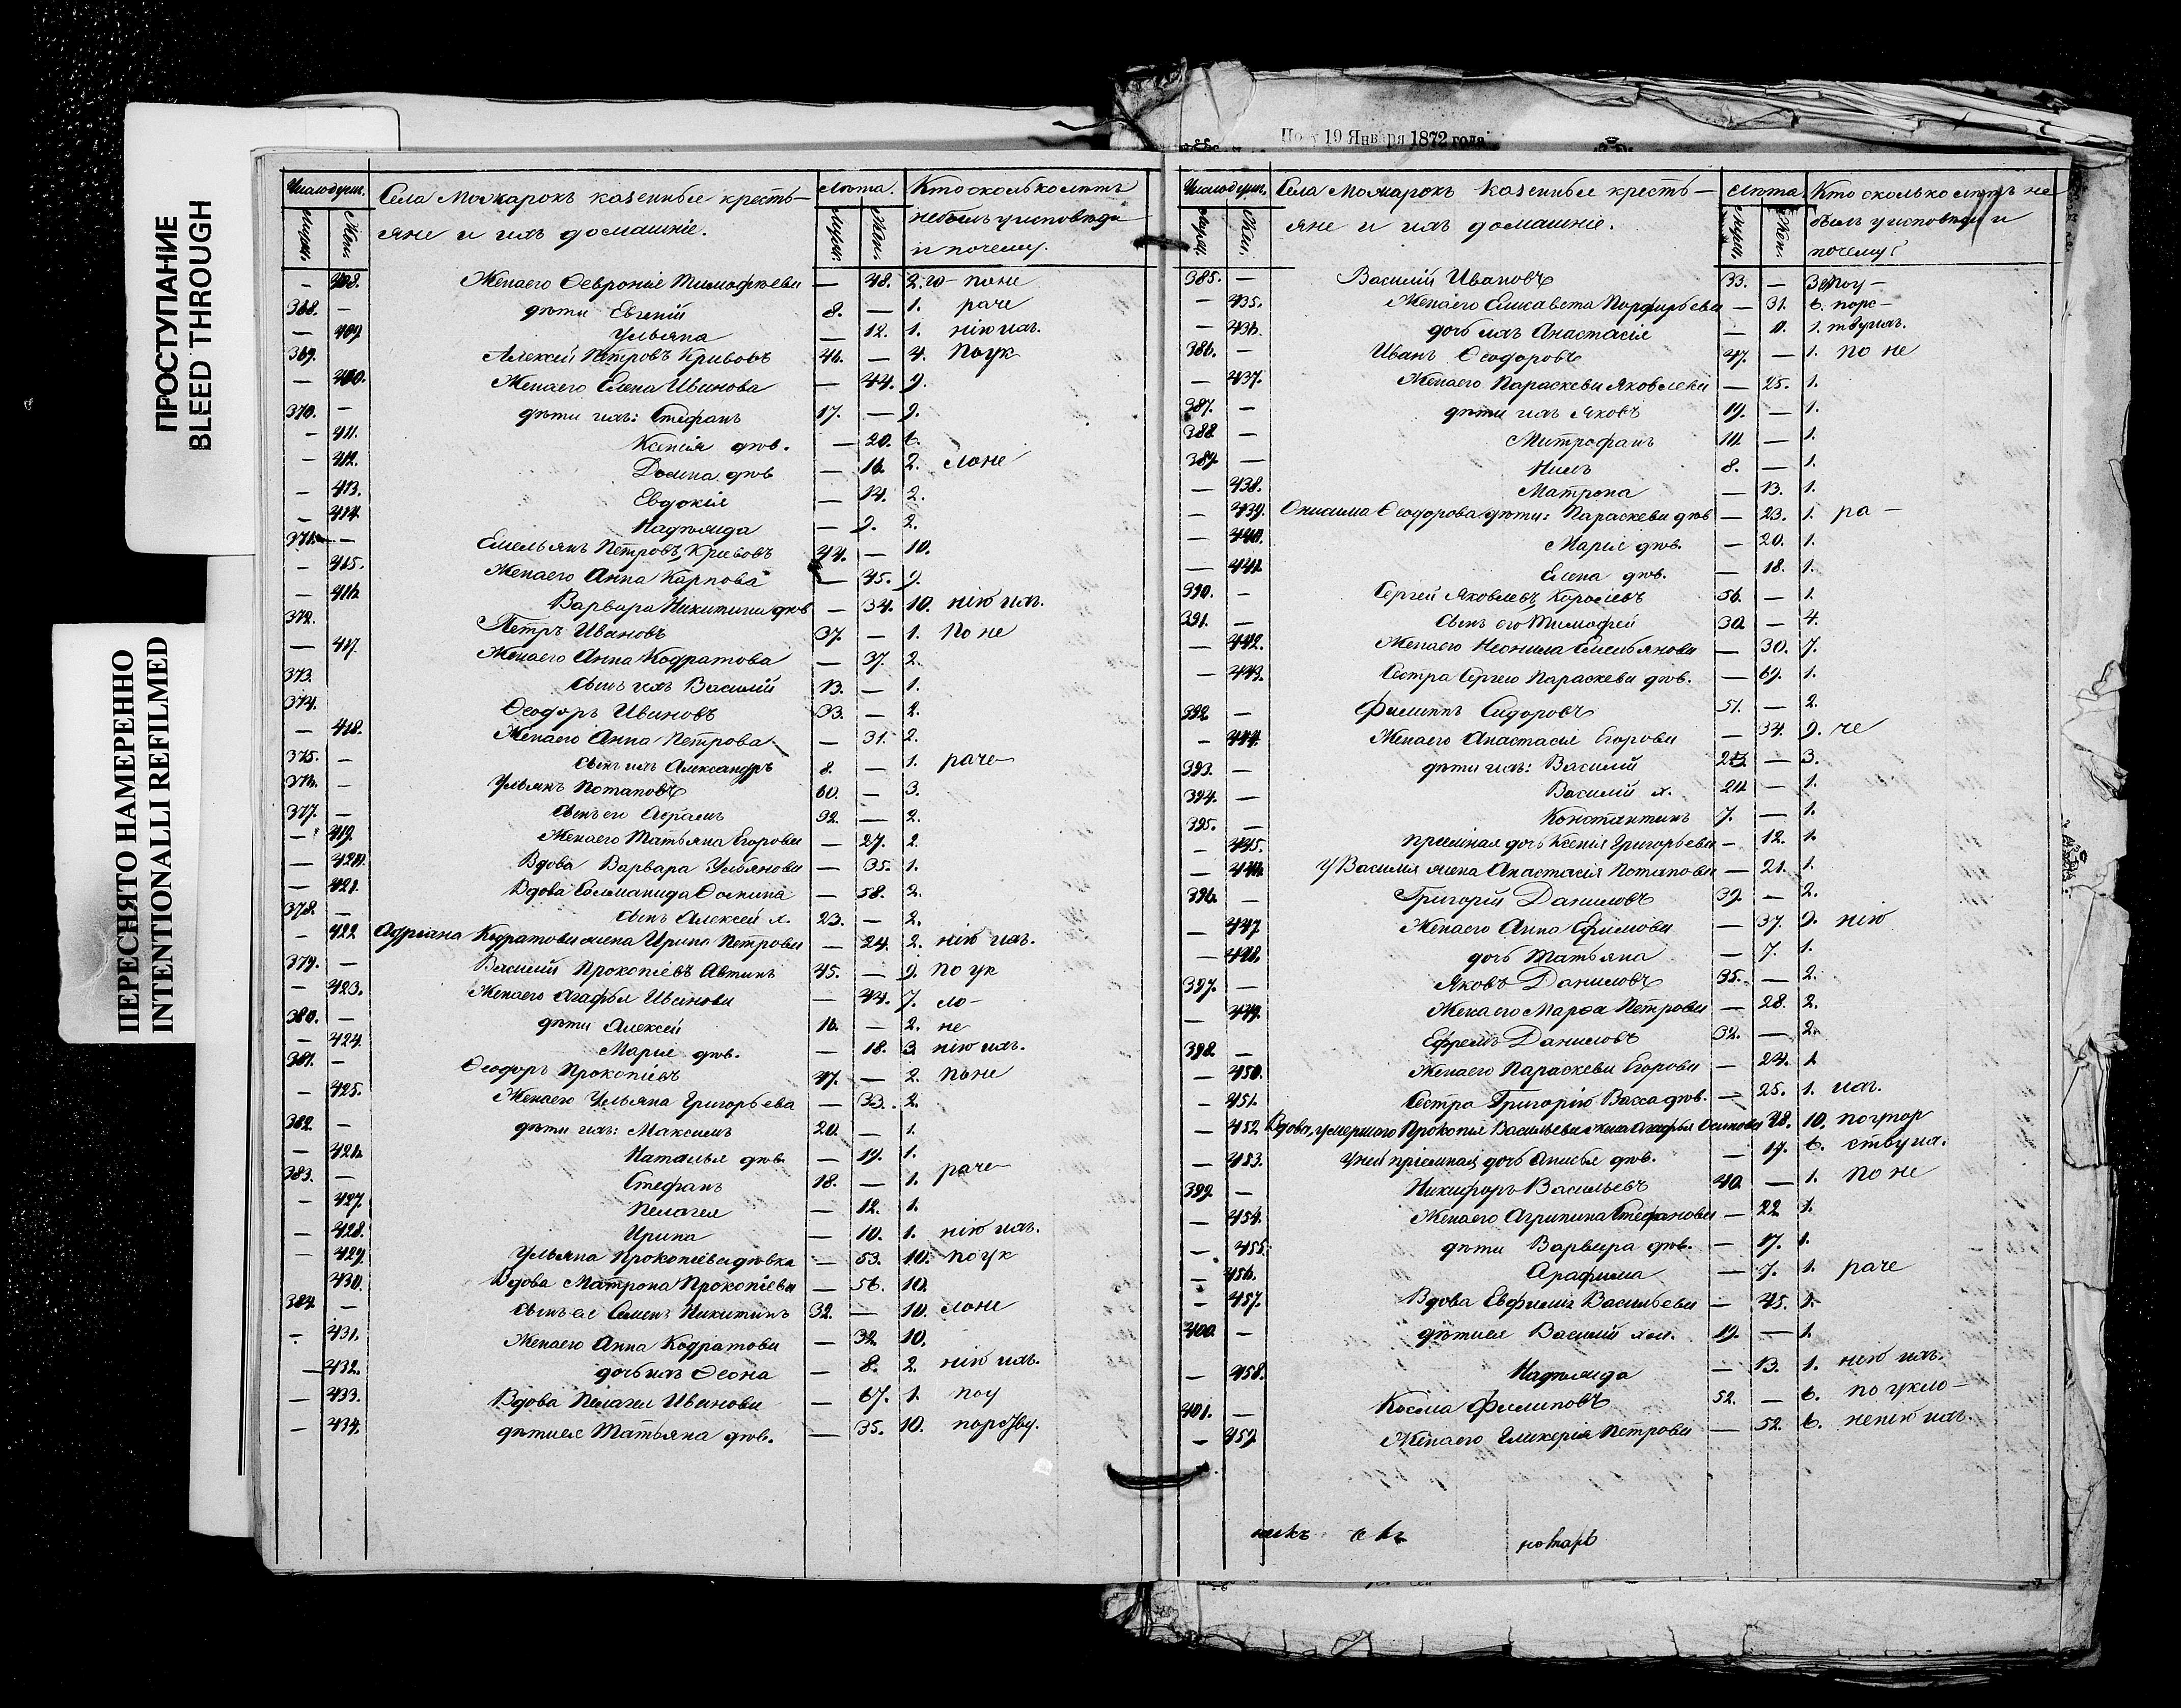 ПРОСТУПАНИЕ
BLEED THROUGH
ПЕРЕСНЯТО НАМЕРЕННО
INTENTIONALLI REFILMED
19 Января 1872 года
Число душъ. Села Можарокъ казенные кресть- Лѣта. Кто сколько лѣтъ
яне и ихъ домашніе. не былъ у исповѣди
Мужес. Жен. Мужес. Жен. и почему.
— 408. Жена его Ѳевронія Тимоѳѣева — 48. 2. го- поне
368. — дѣти Евгеній 8. — 1. раче
— 409. Ульяна — 12. 1. нію ихъ.
369. Алексѣй Петровъ Кривовъ 46. — 4. По ук
— 410. Жена его Елена Иванова — 44. 9.
370. — дѣти ихъ: Стефанъ 17. — 9.
— 411. Ксенія дѣв. — 20. 6.
— 412. Домна дѣв — 16. 2. лоне
— 413. Евдокія — 14. 2.
— 414. Надѣжда — 9. 2.
371. — Емельянъ Петровъ Кривовъ 44. — 10.
— 415. Жена его Анна Карпова — 45. 9.
— 416. Варвара Никитина дѣв — 34. 10. нію ихъ.
372. Петръ Ивановъ 37. — 1. По не
— 417. Жена его Анна Кодратова — 37. 2.
373. сынъ ихъ Василій 13. — 1.
374. Ѳеодоръ Ивановъ 33. — 2.
— 418. Жена его Анна Петрова — 31. 2.
375. — сынъ ихъ Александръ 8. — 1. раче
376. — Ульянъ Потаповъ 60. — 3.
377. — сынъ его 32. — 2.
— 419. Жена его Татьяна Егорова — 27. 2.
— 420. Вдова Варвара Ульянова — 35. 1.
— 421. Вдова — 58. 2.
378. — сынъ Алексѣй х. 23. — 2.
— 422 Адріана Кодратова жена Ирина Петрова — 24. 2. нію ихъ.
379. — Василій Прокопіевъ Автинъ 45. — 9. по ук
— 423. Жена его Агафья Иванова — 44. 7. ло-
380. — дѣти Алексѣй 16. — 2. не
— 424. Марія дѣв. — 18. 3. нію ихъ.
381. — Ѳеодоръ Прокопіевъ 47. — 2. по не
— 425. Жена его Ульяна Григорьева — 33. 2.
382. — дѣти ихъ: Максимъ 20. — 1.
— 426. Наталья дѣв. — 19. 1.
383. — Стефанъ 18. — 1. раче
— 427. Пелагея — 12. 1.
— 428. Ирина — 10. 1. нію ихъ.
— 429. Ульяна Прокопіева дѣвка — 53. 10. по ук
430. Вдова Матрона Прокопіева — 56. 10.
384. — сынъ ея Семенъ Никитинъ 32. — 10. лоне
— 431. Жена его Анна Кодратова — 32. 10.
— 432. дочь ихъ Ѳеона — 8. 2. нію ихъ.
— 433. Вдова Пелагея Иванова — 67. 1. поу
— 434. дѣти ея Татьяна дѣв. — 35. 10.
Число душъ. Села Можарокъ казенные кресть- Лѣта Кто сколько лѣтъ не
яне и ихъ домашніе. былъ у исповѣди и
Мужес. Жен. Мужес. Жен. почему?
385. — Василій Ивановъ 33. — 3. По у-
— 435. Жена его Елисавета Порфирьева — 31. 6. порс-
— 436. дочь ихъ Анастасія — 11. 1. тву ихъ.
386. — Иванъ Ѳеодоровъ 47. — 1. по не
— 437. Жена его Параскева Яковлева — 25. 1.
387. — дѣти ихъ Яковъ 19. — 1.
388. — Митрофанъ — 1.
389. — Нилъ 8. — 1.
— 438. Матрона — 13. 1.
— 439. Онисима Ѳеодорова дѣти: Параскева дѣв — 23. 1. ра-
— 440. Марія дѣв. — 20. 1.
— 441. Елена дѣв. — 18. 1.
390. — Сергей Яковлевъ 56. — 1.
391. — сынъ его Тимофей 30. — 4.
— 442. Жена его Неонила Емельянова — 30. 7.
— 443. Сестра Сергею Параскева дѣв. — 69. 1.
392. — Филиппъ Сидоровъ 51. — 2.
— 444. Жена его Анастасія Егорова — 34. 9. че
393. — дѣти ихъ: Василій — 3.
394. — Василій х. — 1.
395. — Константинъ 7. — 1.
— 445. пріемная дочь Ксенія Григорьева — 12. 1.
— 446. У Василія жена Анастасія Потапова — 21. 1.
396. — Григорій Даниловъ 39. — 2.
— 447 Жена его Анна Ефимова — 37. 9. нію
— 448. дочь Татьяна — 7. 1.
397. — Яковъ Даниловъ 35. — 2.
— 449. Жена его Марѳа Петрова — 28. 2.
398. — Ефремъ Даниловъ 32. — 2.
— 450. Жена его Параскева Егорова — 24. 1
— 451. Сестра Григорію Васса дѣв. — 25. 1. ихъ.
— 452 Вдова, умершаго Прокопія Васильева жена Агафья Осипова 48. 10. по упор
— 453. у ней пріемная дочь Анисья дѣв. — 17. 6. ству их.
399. — Никифоръ Васильевъ 40. — 1. по не
— 454. Жена его Агрипина Стефанова — 22 1.
— 455. дѣти Варвара дѣв. — 17. 1.
— 456. — 7. 1. раче
— 457. Вдова Евфимія Васильева — 45. 1.
400. — дѣти ея Василій хол. 19. — 1.
— 458. Надѣжда — 13. 1. нію ихъ.
401. — Косма Филиповъ 52. — 6. по укло-
— 459 Жена его Гликерія Петрова — 52. 6. ненію ихъ.